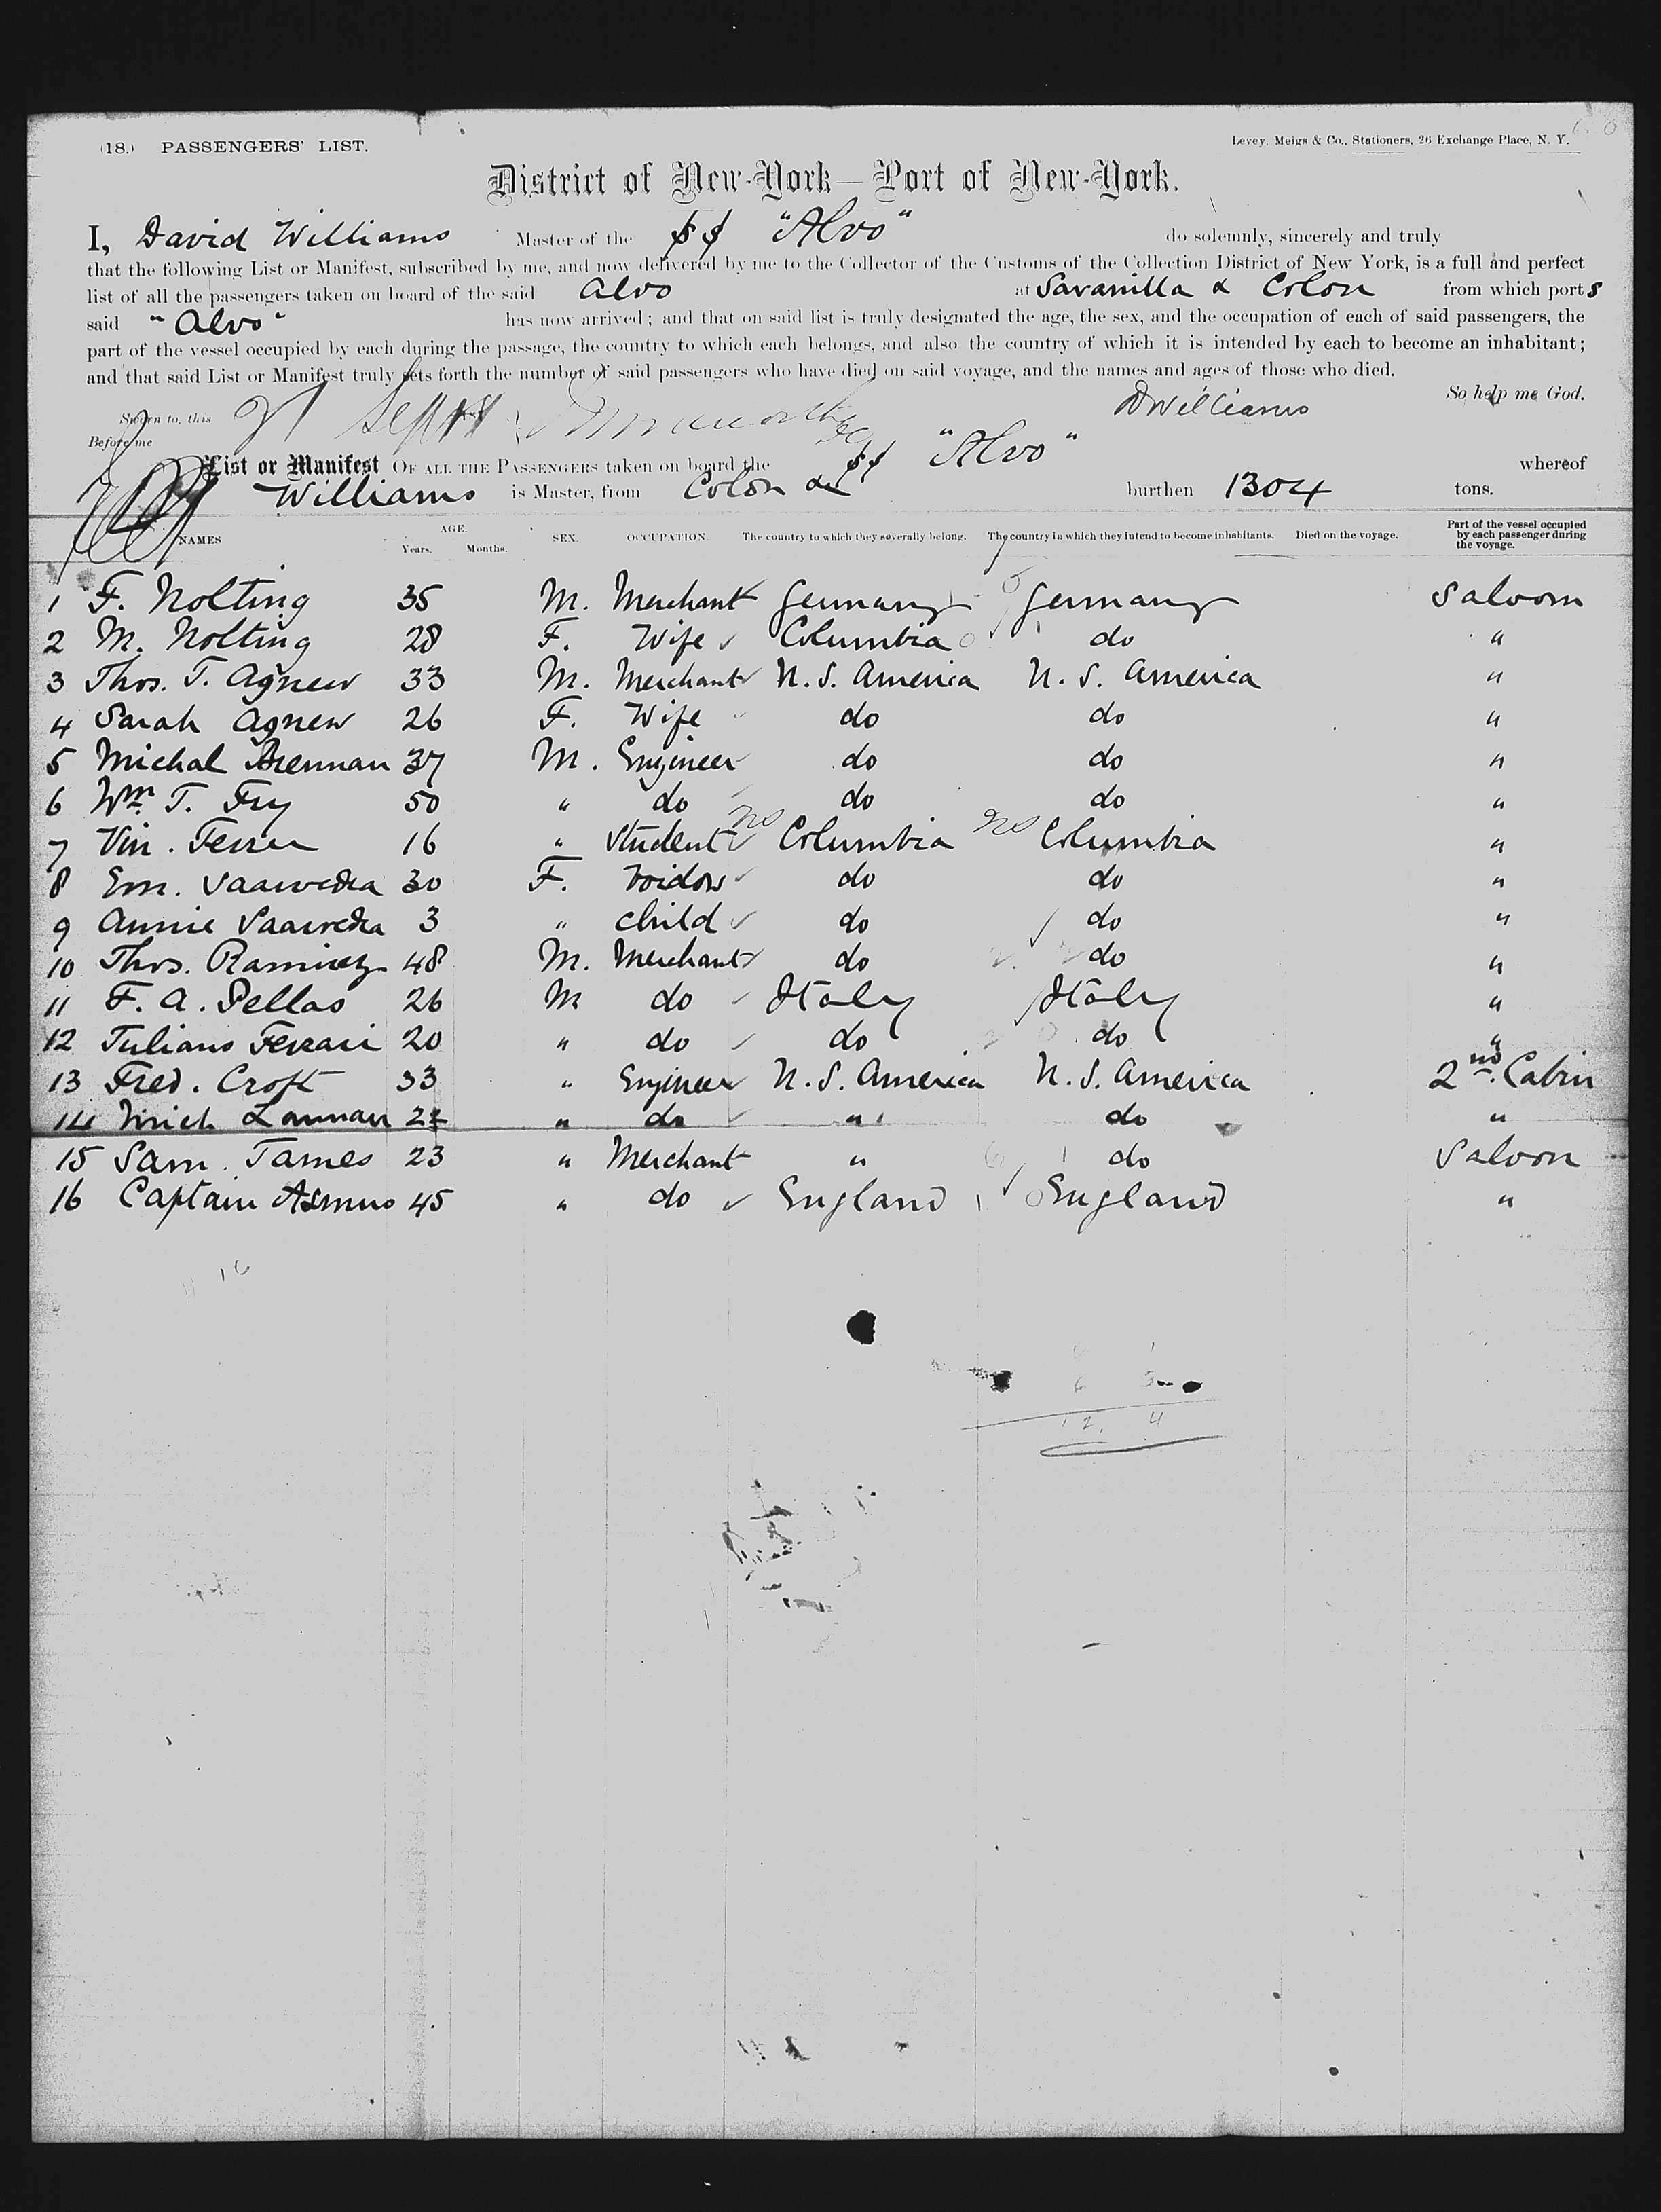 (18.) PASSENGERS' LIST. Levey, Meigs & Co., Stationers, 26 Exchange Place, N. Y.
District of New-York—Port of New-York.
I, David Williams Master of the SS "Alvo" do solemnly, sincerely and truly
that the following List or Manifest, subscribed by me, and now delivered by me to the Collector of the Customs of the Collection District of New York, is a full and perfect
list of all the passengers taken on board of the said Alvo at Savanilla & Colon from which ports
said "Alvo" has now arrived; and that on said list is truly designated the age, the sex, and the occupation of each of said passengers, the
part of the vessel occupied by each during the passage, the country to which each belongs, and also the country of which it is intended by each to become an inhabitant;
and that said List or Manifest truly sets forth the number of said passengers who have died on said voyage, and the names and ages of those who died.
So help me God.
Sworn to, this 21 Sept DWilliams
Before me
List or Manifest OF ALL THE PASSENGERS taken on board the SS "Alvo" whereof
Williams is Master, from Colon & burthen 1304 tons.
NAMES AGE. Years. Months. SEX. OCCUPATION. The country to which they severally belong. The country in which they intend to become inhabitants. Died on the voyage. Part of the vessel occupied by each passenger during the voyage.
1 F. Nolting 35 M. Merchant Germany Germany Saloon
2 M. Nolting 28 F. Wife Columbia do "
3 Thos. T. Agnew 33 M. Merchant U.S. America U.S. America "
4 Sarah Agnew 26 F. Wife do do "
5 Michal Brennan 37 M. Engineer do do "
6 Wm. T. Fry 50 " do do do "
7 Vin. Ferrer 16 " Student Columbia Columbia "
8 Em. Saavedra 30 F. Widow do do "
9 Annie Saavedra 3 " child do do "
10 Thos. Ramirez 48 M. Merchant do do "
11 F. A. Pellas 26 M do Italy Italy "
12 Juliano Ferrari 20 " do do do "
13 Fred. Croft 33 " Engineer U.S. America U.S. America 2nd. Cabin
14 " do " do "
15 Sam. James 23 " Merchant " do Saloon
16 Captain Asmus 45 " do England England "
16
12. 4